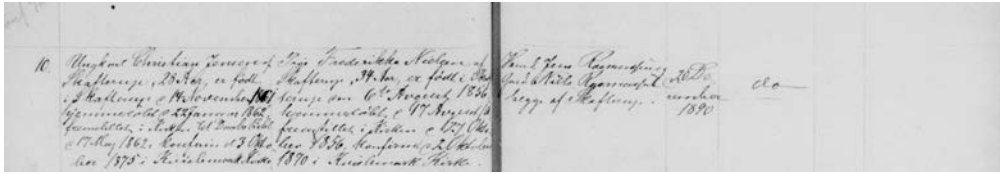 10. Ungkarl Christian Jensen af
Skafterup, 28 Aar, er født
i Skafterup d 14 November 1861
hjemmedøbt d 22 Januar 1862,
fremstillet i Kirken
d 17 Maj 1862, Konfirm. d 3 Okto
ber 1875 i Krislemark Kirke
Pige Frederikke Nielsen af
Skafterup, 34 Aar, er født i Skaf
terup den 6te August 1856
hjemmedøbt d 17 August,
fremstillet i Kirken d 17 Okto
ber 1856, Konfirm. d 2 Oktober
1870 i Krislemark Kirke.
Jens Rasmussen
Niels Rasmussen
begge af Skafterup.
26 De
cember
1890
do